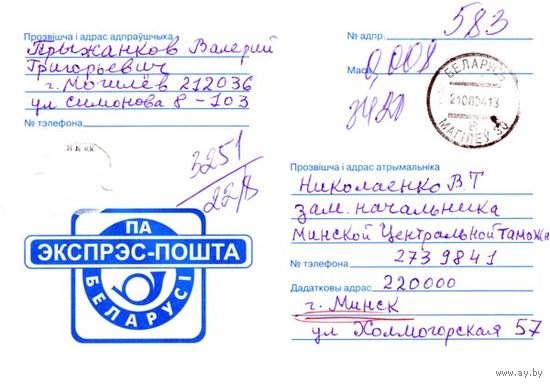 Прозвішча і адрас адпраўшчыка
Прыжанков Валерий
Григорьевич
г. Могилёв 212036
ул Симонова 8-103
№ тэлефона
3251
22/8
ПА
ЭКСПРЭС-ПОШТА
БЕЛАРУСІ
№ адпр. 583
Маса 0,008
БЕЛАРУСЬ
МАГІЛЕЎ 36
Прозвішча і адрас атрымальніка
Николаенко В.Т
зам. начальника
Минской Центральной Таможн
№ тэлефона 2739841
Дадатковы адрас 220000
г. Минск
ул Холмогорская 57
www.ay.by